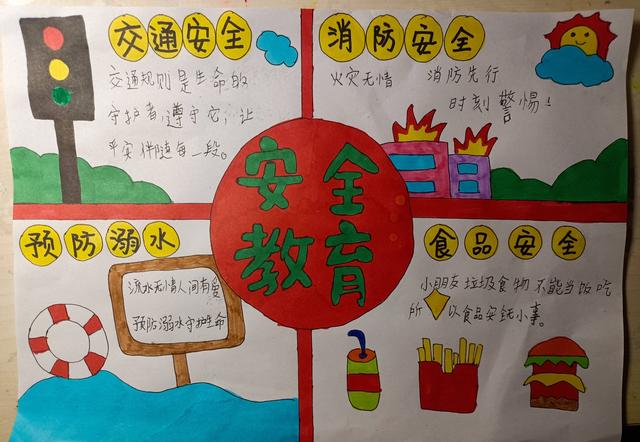 交通安全
交通规则是生命的
守护者，遵守它，让
平安伴随每一段。
消防安全
火灾无情 消防先行
时刻警惕！
安全
教育
预防溺水
流水无情人间有爱
预防溺水守护生命
食品安全
小朋友垃圾食物不能当饭吃
所以食品安全无小事。